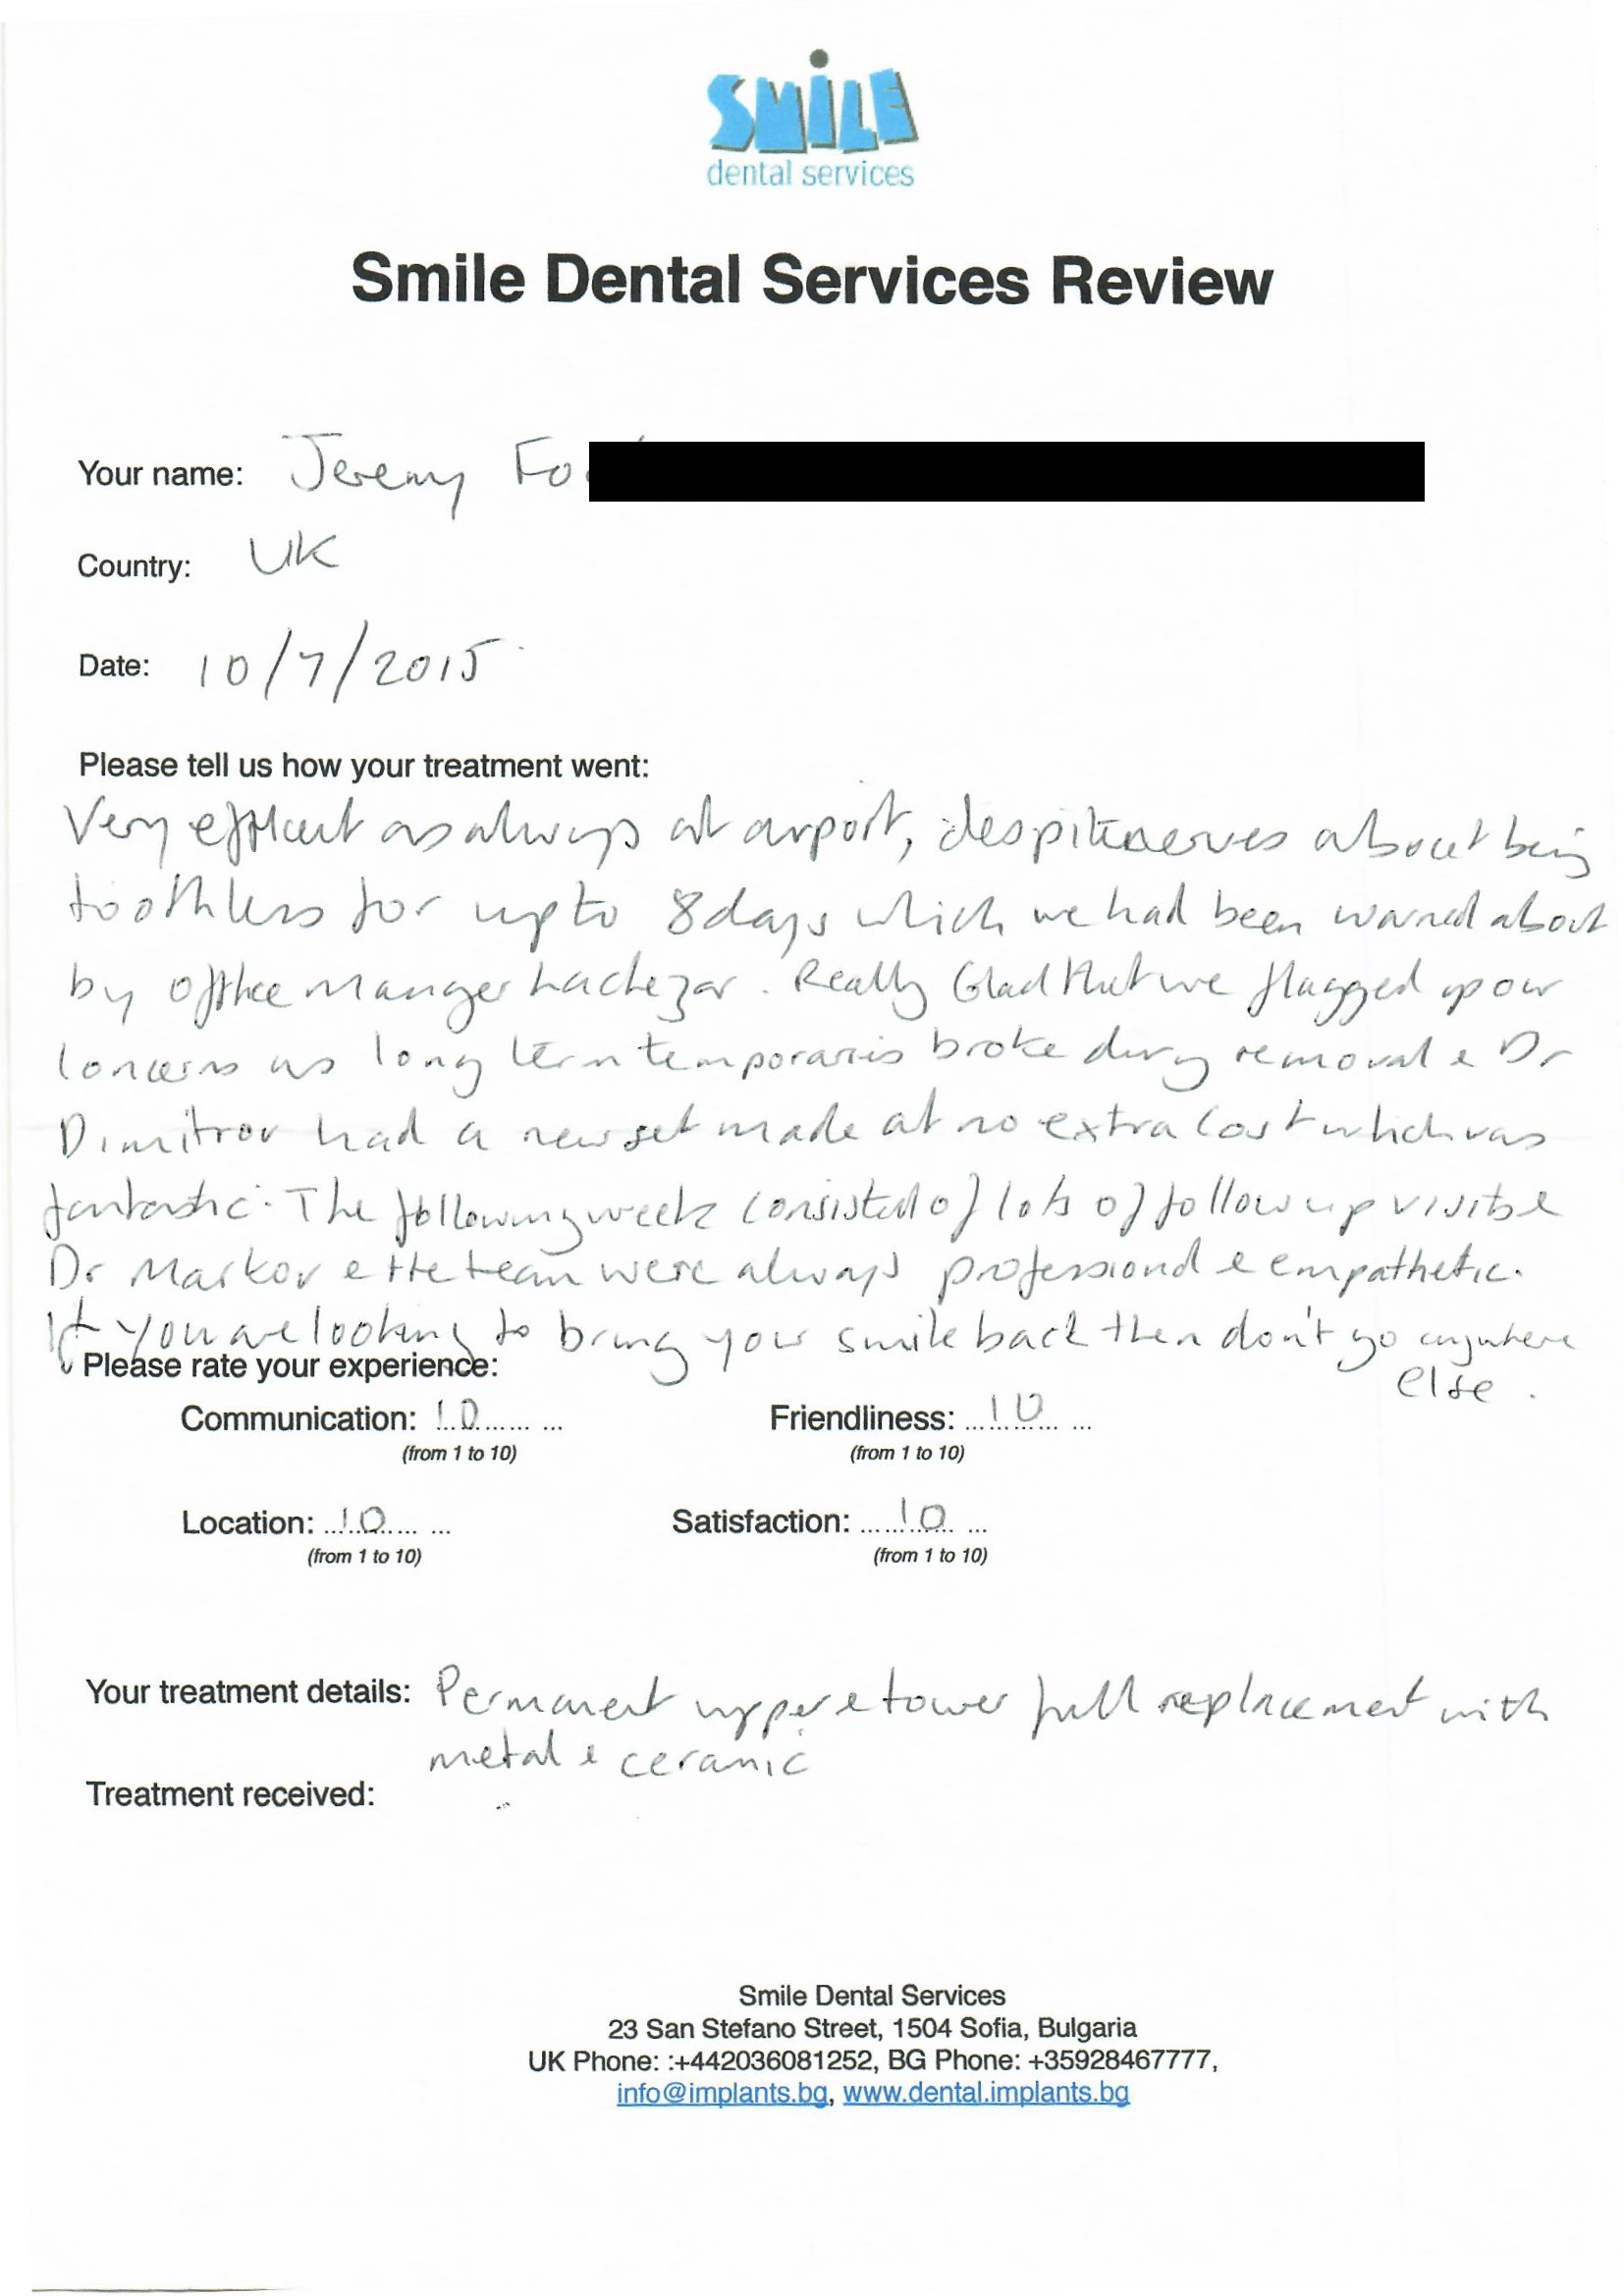 SMiLE
dental services
Smile Dental Services Review
Your name: Jeremy Fo
Country: UK
Date: 10/7/2015
Please tell us how your treatment went:
Very efficient as always at airport, despite nerves about being
toothless for up to 8 days which we had been warned about
by office manger Lachezar. Really Glad that we flagged up our
concerns as long term temporaries broke during removal & Dr
Dimitrov had a new set made at no extra cost which was
fantastic. The following week consisted of lots of follow up visits &
Dr Markov & the team were always professional & empathetic.
If you are looking to bring your smile back then don't go anywhere
else.
Please rate your experience:
Communication: 10 Friendliness: 10
(from 1 to 10) (from 1 to 10)
Location: 10 Satisfaction: 10
(from 1 to 10) (from 1 to 10)
Your treatment details: Permanent upper & lower full replacement with
metal & ceramic
Treatment received:
Smile Dental Services
23 San Stefano Street, 1504 Sofia, Bulgaria
UK Phone: :+442036081252, BG Phone: +35928467777,
info@implants.bg, www.dental.implants.bg